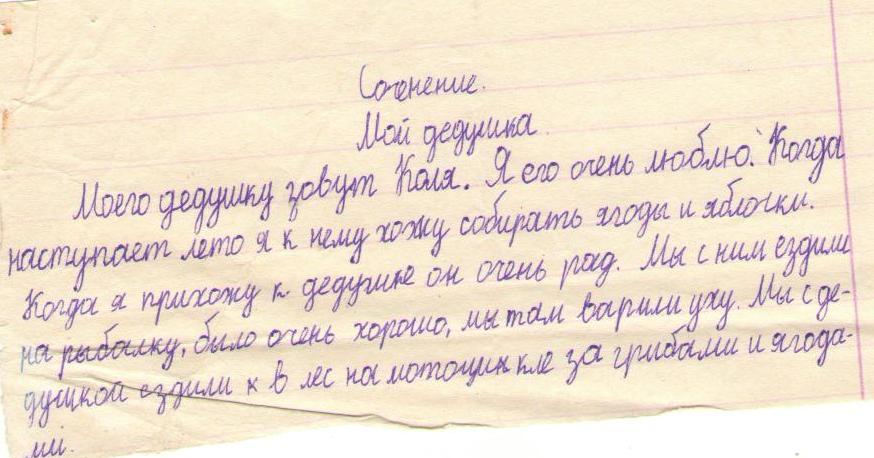 Сочинение.
Мой дедушка.
Моего дедушку зовут Коля. Я его очень люблю. Когда
наступает лето я к нему хожу собирать ягоды и яблочки.
Когда я прихожу к дедушке он очень рад. Мы с ним ездили
на рыбалку, было очень хорошо, мы там варили уху. Мы с де-
душкой ездили к в лес на мотоцикле за грибами и ягода-
ми.